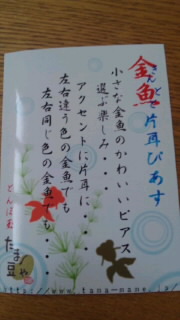 金魚
きんぎょで片耳ぴあす
小さな金魚のかわいいピアス
選ぶ楽しみ・・・・
アクセントに片耳に・・・
左右違う色の金魚でも
左右同じ色の金魚でも・・・
とんぼ玉
たま豆や
http://www.tama-mame.jp/